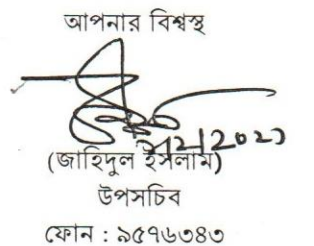 আপনার বিশ্বস্থ
(জাহিদুল ইসলাম)
উপসচিব
ফোন : ৯৫৭৬৩৪৩